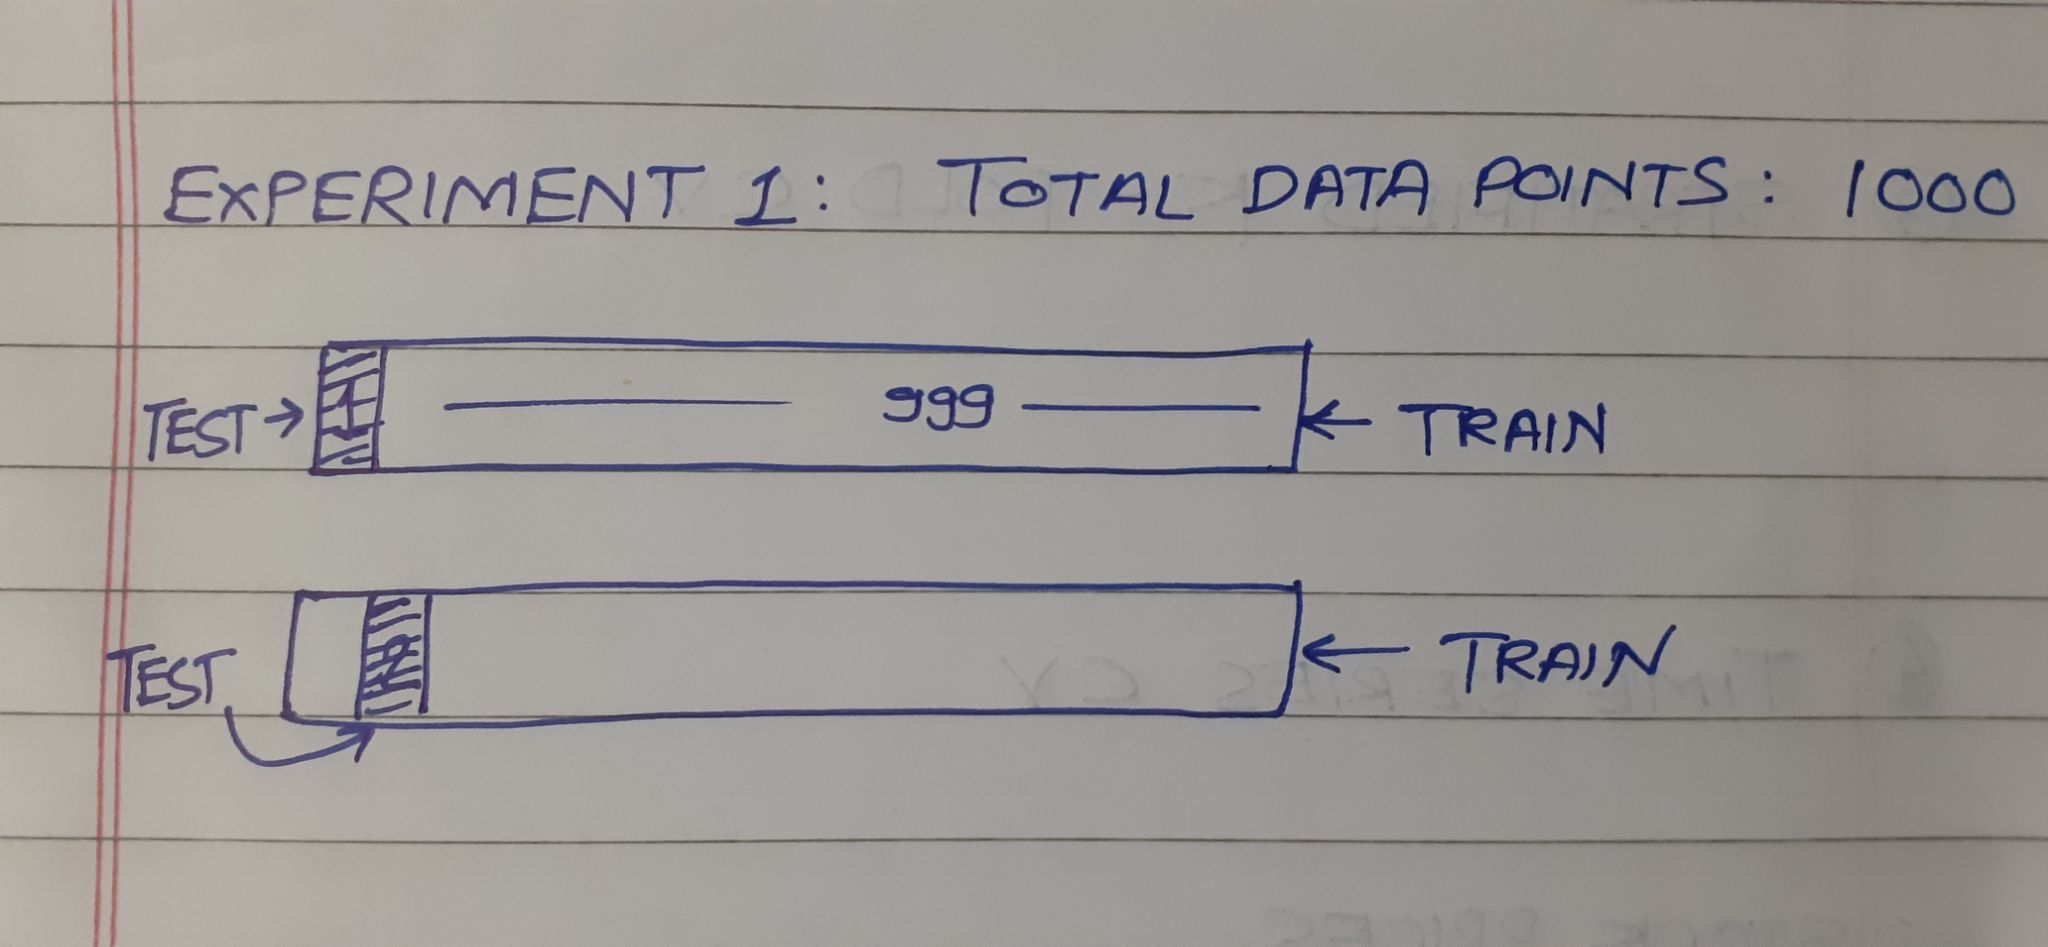 EXPERIMENT 1: TOTAL DATA POINTS: 1000
TEST → 1 999 ← TRAIN
TEST ← TRAIN